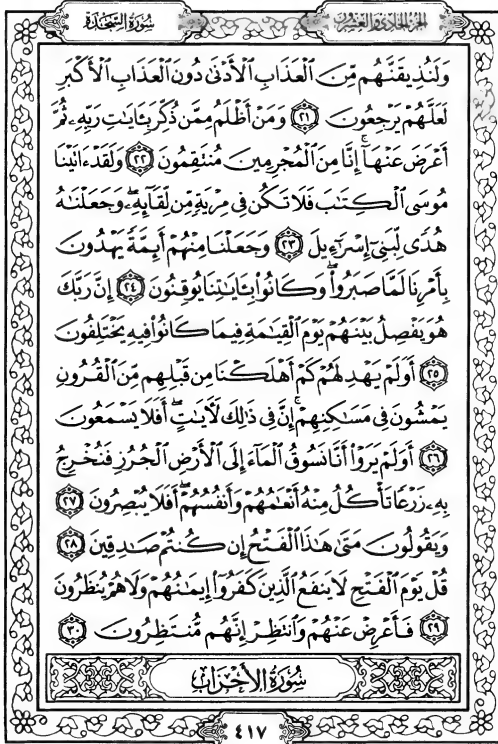 سُورَةُ السَّجْدَةِ
الجزء الحادي والعشرون
وَلَنُذِيقَنَّهُم مِّنَ ٱلْعَذَابِ ٱلْأَدْنَىٰ دُونَ ٱلْعَذَابِ ٱلْأَكْبَرِ
لَعَلَّهُمْ يَرْجِعُونَ ﴿٢١﴾ وَمَنْ أَظْلَمُ مِمَّن ذُكِّرَ بِـَٔايَـٰتِ رَبِّهِۦ ثُمَّ
أَعْرَضَ عَنْهَآ ۚ إِنَّا مِنَ ٱلْمُجْرِمِينَ مُنتَقِمُونَ ﴿٢٢﴾ وَلَقَدْ ءَاتَيْنَا
مُوسَى ٱلْكِتَـٰبَ فَلَا تَكُن فِى مِرْيَةٍ مِّن لِّقَآئِهِۦ ۖ وَجَعَلْنَـٰهُ
هُدًى لِّبَنِىٓ إِسْرَٰٓءِيلَ ﴿٢٣﴾ وَجَعَلْنَا مِنْهُمْ أَئِمَّةً يَهْدُونَ
بِأَمْرِنَا لَمَّا صَبَرُوا۟ ۖ وَكَانُوا۟ بِـَٔايَـٰتِنَا يُوقِنُونَ ﴿٢٤﴾ إِنَّ رَبَّكَ
هُوَ يَفْصِلُ بَيْنَهُمْ يَوْمَ ٱلْقِيَـٰمَةِ فِيمَا كَانُوا۟ فِيهِ يَخْتَلِفُونَ
﴿٢٥﴾ أَوَلَمْ يَهْدِ لَهُمْ كَمْ أَهْلَكْنَا مِن قَبْلِهِم مِّنَ ٱلْقُرُونِ
يَمْشُونَ فِى مَسَـٰكِنِهِمْ ۚ إِنَّ فِى ذَٰلِكَ لَـَٔايَـٰتٍ ۖ أَفَلَا يَسْمَعُونَ
﴿٢٦﴾ أَوَلَمْ يَرَوْا۟ أَنَّا نَسُوقُ ٱلْمَآءَ إِلَى ٱلْأَرْضِ ٱلْجُرُزِ فَنُخْرِجُ
بِهِۦ زَرْعًا تَأْكُلُ مِنْهُ أَنْعَـٰمُهُمْ وَأَنفُسُهُمْ ۖ أَفَلَا يُبْصِرُونَ ﴿٢٧﴾
وَيَقُولُونَ مَتَىٰ هَـٰذَا ٱلْفَتْحُ إِن كُنتُمْ صَـٰدِقِينَ ﴿٢٨﴾
قُلْ يَوْمَ ٱلْفَتْحِ لَا يَنفَعُ ٱلَّذِينَ كَفَرُوٓا۟ إِيمَـٰنُهُمْ وَلَا هُمْ يُنظَرُونَ
﴿٢٩﴾ فَأَعْرِضْ عَنْهُمْ وَٱنتَظِرْ إِنَّهُم مُّنتَظِرُونَ ﴿٣٠﴾
سُورَةُ الأَحْزَابِ
٤١٧